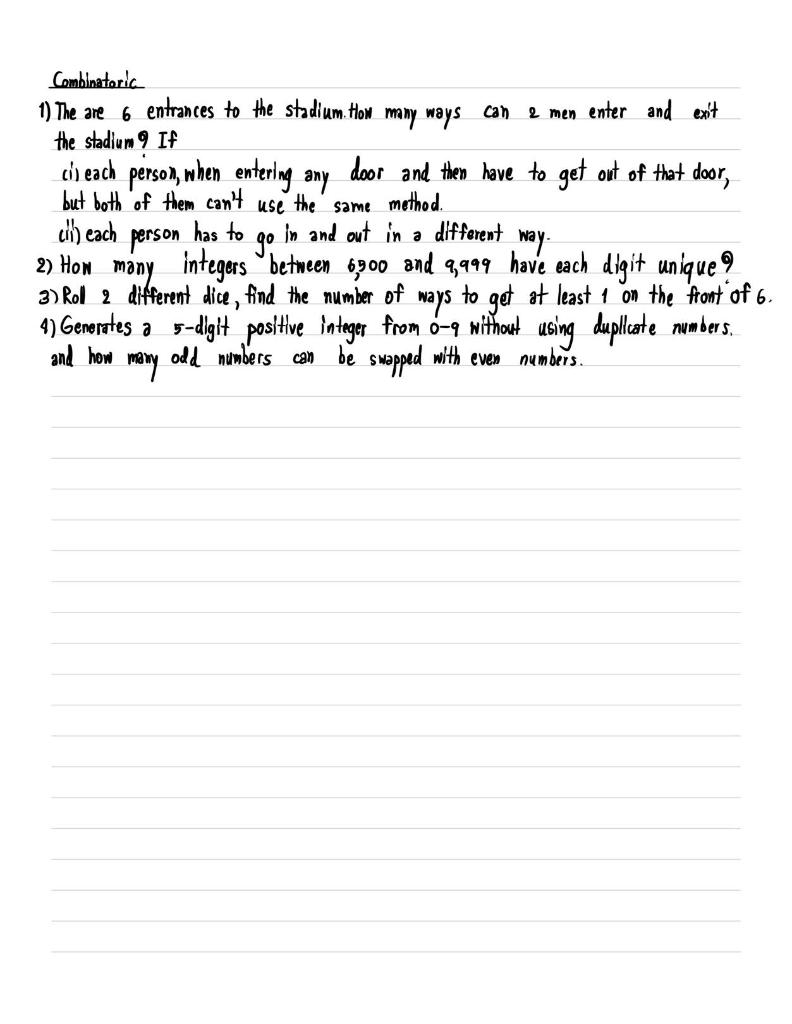 Combinatoric
1) The are 6 entrances to the stadium. How many ways can 2 men enter and exit
the stadium? If
(i) each person, when entering any door and then have to get out of that door,
but both of them can't use the same method.
(ii) each person has to go in and out in a different way.
2) How many integers between 6,500 and 9,999 have each digit unique?
3) Roll 2 different dice, find the number of ways to get at least 1 on the front of 6.
4) Generates a 5-digit positive integer from 0-9 without using duplicate numbers.
and how many odd numbers can be swapped with even numbers.